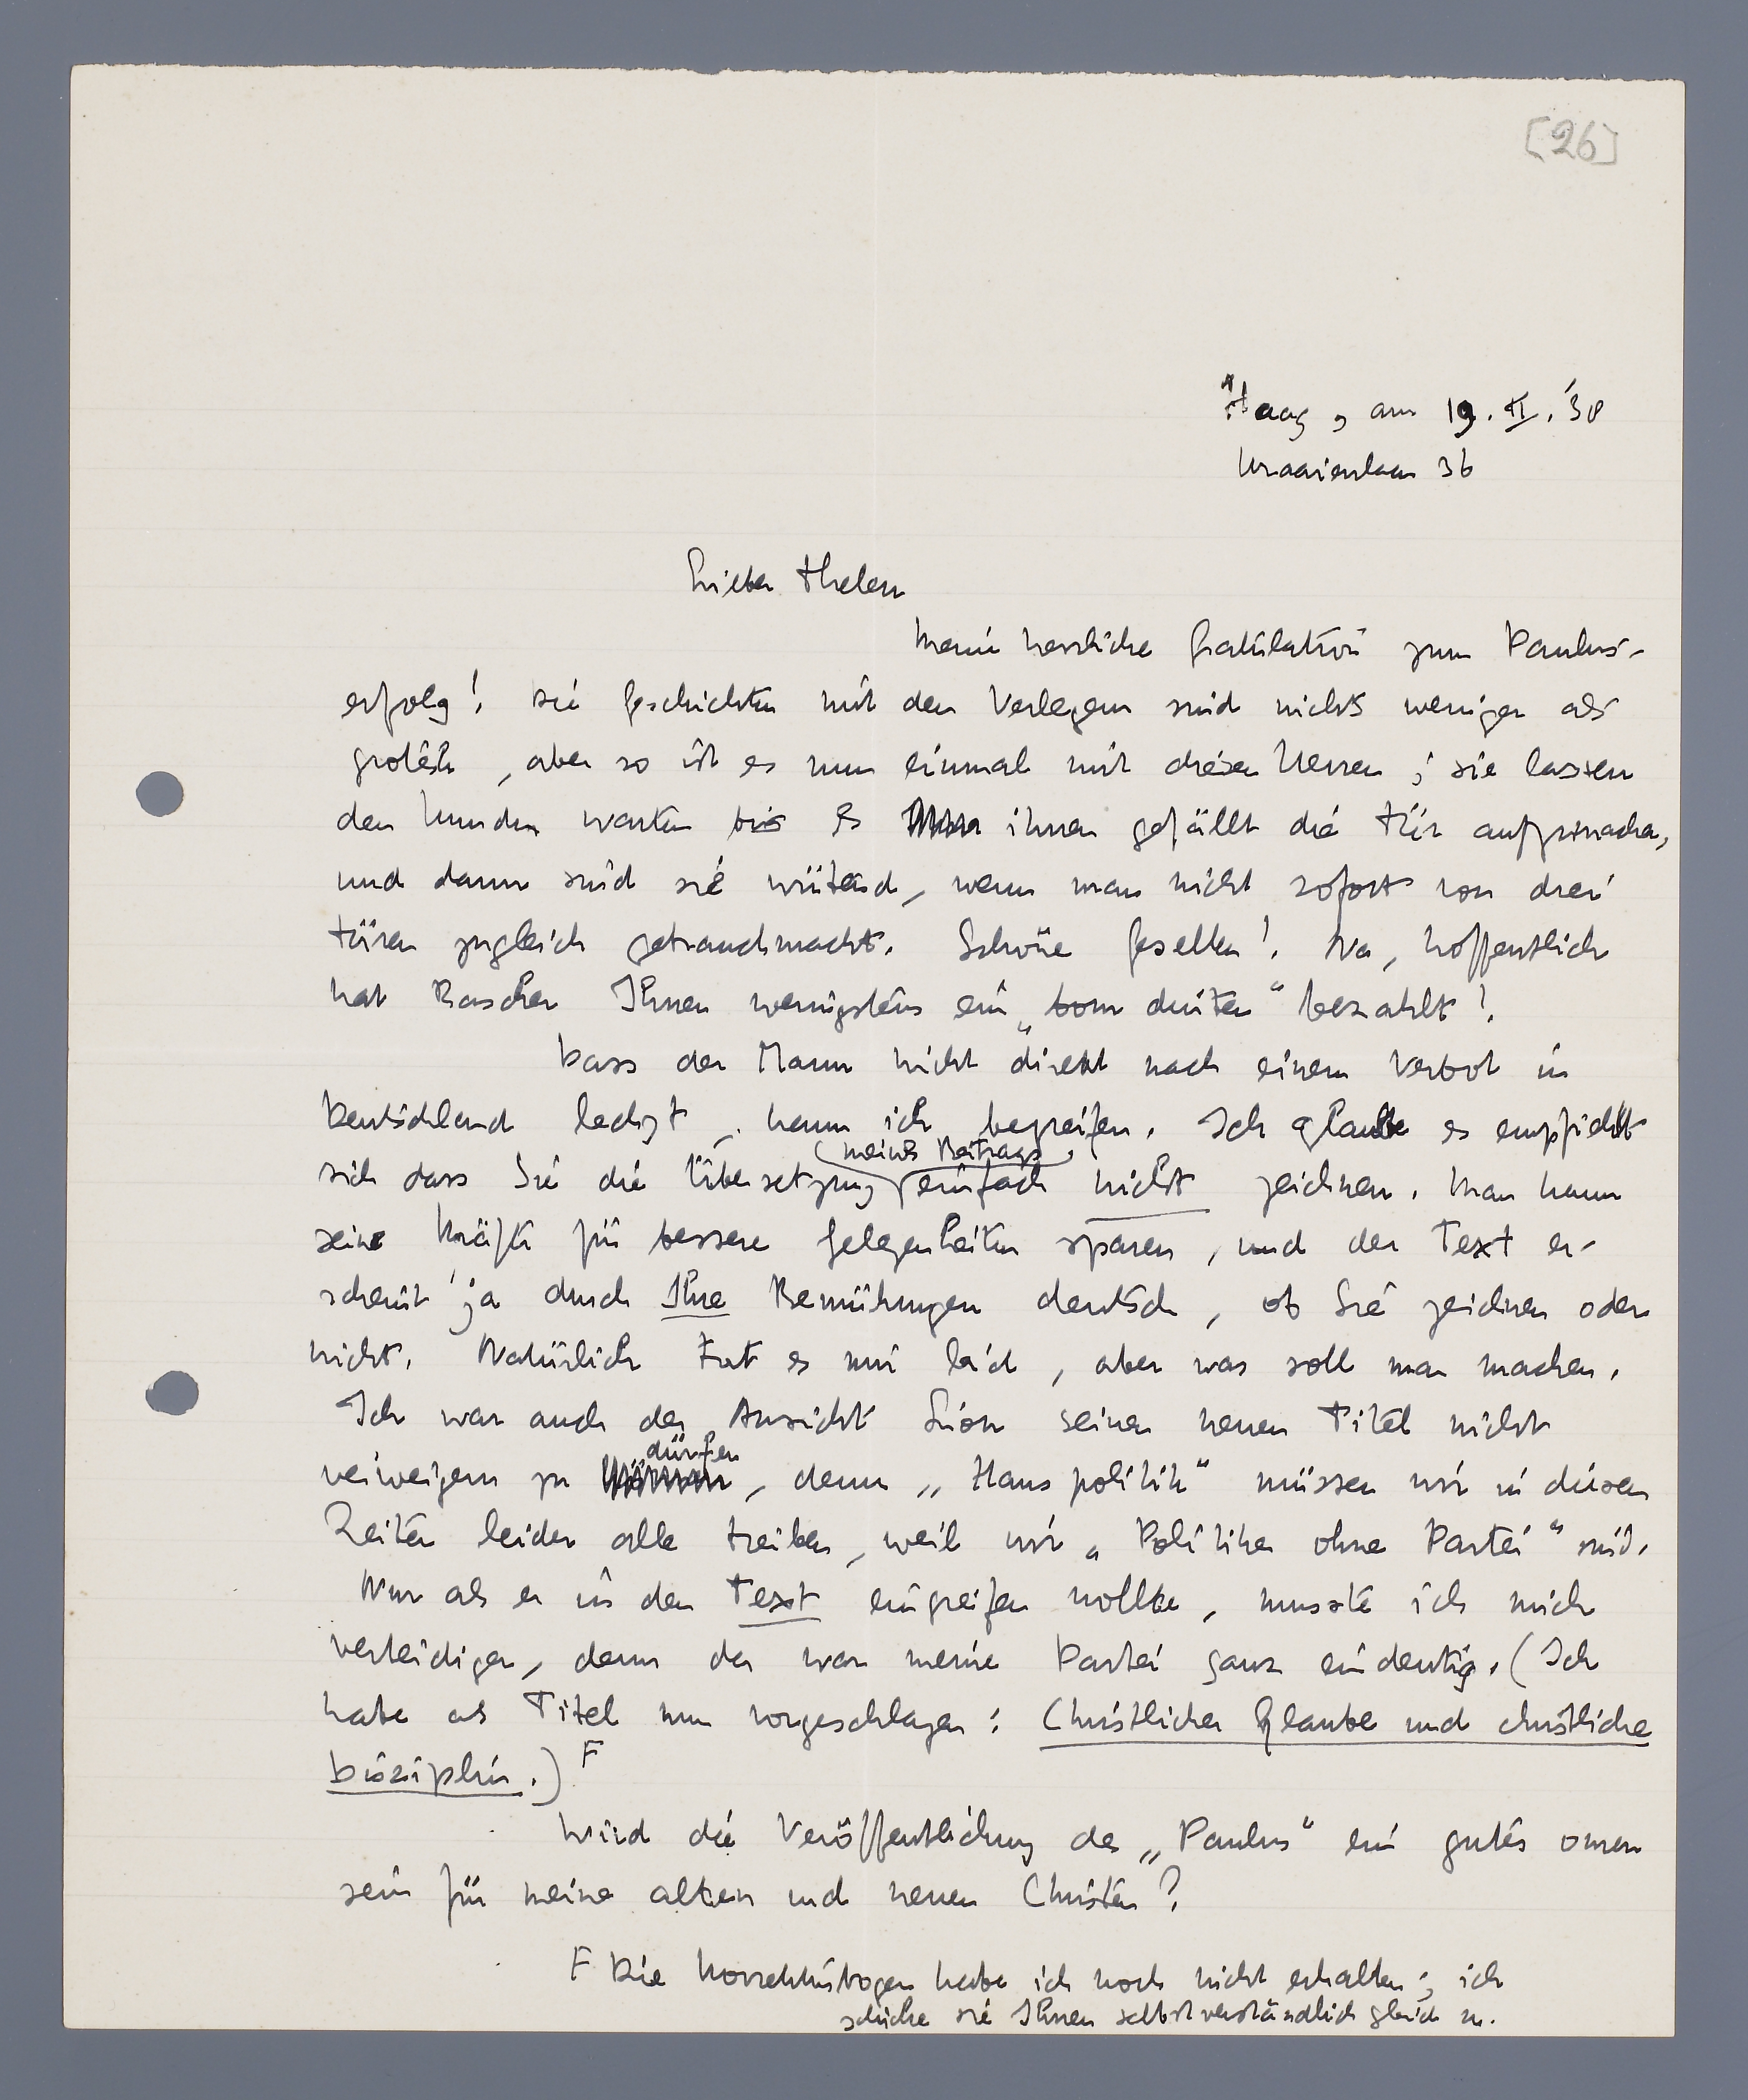 [26]
Haag, am 19. II. '38
Kraaienlaan 36
Lieber Thelen
Meine herzliche Gratulation zum Paulus-
erfolg! Die Geschichten mit den Verlegern sind nichts weniger als
grotesk, aber so ist es nun einmal mit diesen Herren; sie lassen
den Kunden warten bis es ihnen gefällt die Tür aufzumachen,
und dann sind sie wütend, wenn man nicht sofort von drei
Türen zugleich gebrauch macht. Schöne Gesellen! Na, hoffentlich
hat Rascher Ihnen wenigstens ein „bom duiten“ bezahlt!
Dass der Mann nicht direkt nach einem Verbot in
Deutschland lechzt, kann ich begreifen. Ich glaube es empfiehlt
sich dass Sie die Übersetzung (meines Beitrags) einfach nicht zeichnen. Man kann
seine Kräfte für bessere Gelegenheiten sparen, und der Text er-
scheint ja durch Ihre Bemühungen deutsch, ob Sie zeichnen oder
nicht. Natürlich tut es mir leid, aber was soll man machen.
Ich war auch der Ansicht Lion seinen neuen Titel nicht
verweigern zu dürfen, denn „Hauspolitik“ müssen wir in diesen
Zeiten leider alle treiben, weil wir „Politiker ohne Partei“ sind.
Nur als er in den Text eingreifen wollte, musste ich mich
verteidigen, denn da war meine Partei ganz eindeutig. (Ich
habe als Titel nun vorgeschlagen: Christlicher Glaube und christliche
Disziplin.) F
Wird die Veröffentlichung des „Paulus“ ein gutes omen
sein für meine alten und neuen Christen?
F Die Korrekturbogen habe ich noch nicht erhalten; ich
schicke sie Ihnen selbstverständlich gleich zu.